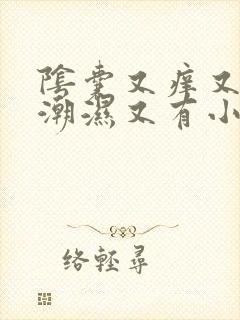 陰囊又癢又
潮濕又有小
络輕尋